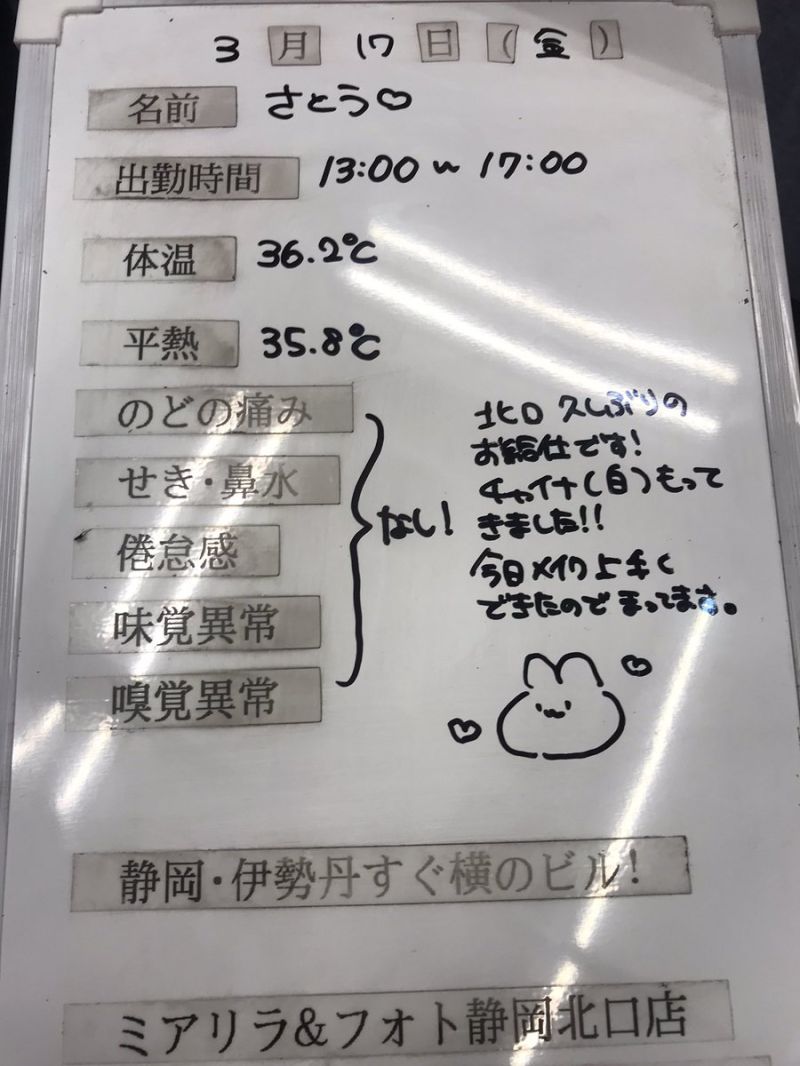 3月17日(金)
名前 さとう♡
出勤時間 13:00～17:00
体温 36.2℃
平熱 35.8℃
のどの痛み
せき・鼻水
倦怠感
味覚異常
嗅覚異常
なし!
北口久しぶりの
お給仕です!
チャイナ(白)もって
きました!!
今日メイク上手く
できたのでまってまさ。
静岡・伊勢丹すぐ横のビル!
ミアリラ&フォト静岡北口店